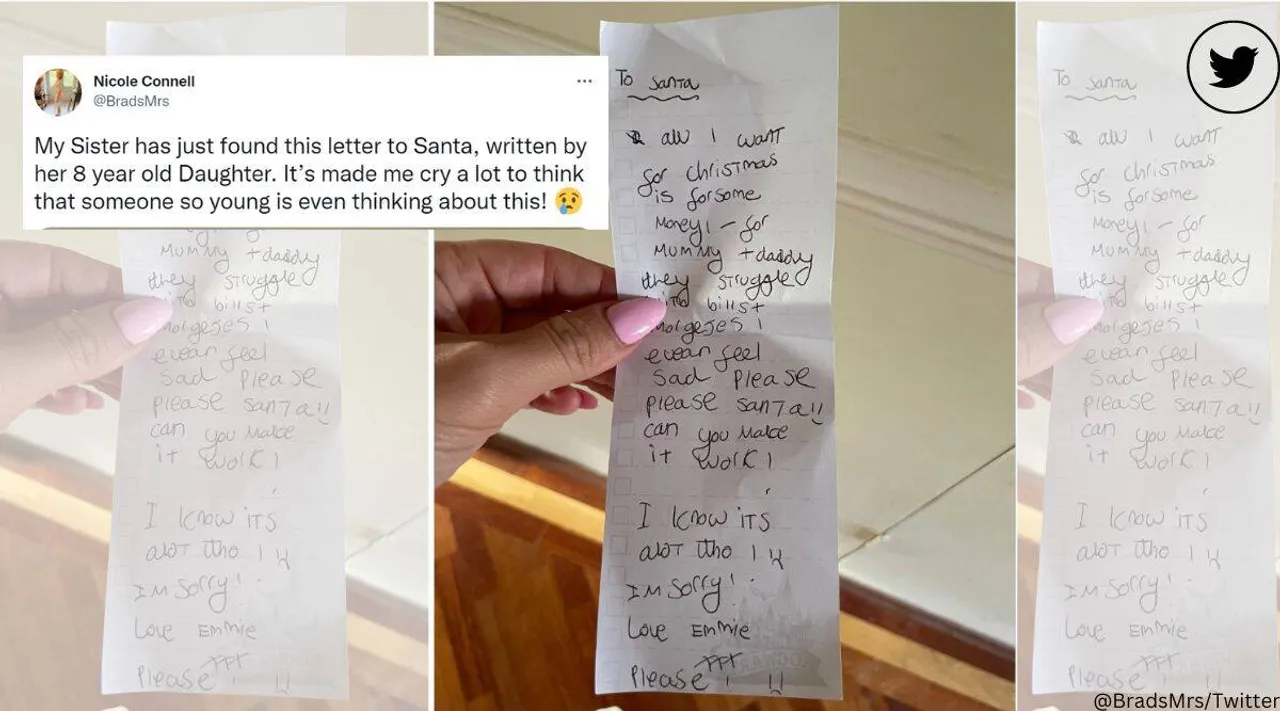 Nicole Connell
@BradsMrs
My Sister has just found this letter to Santa, written by
her 8 year old Daughter. It's made me cry a lot to think
that someone so young is even thinking about this! 😢
To Santa
all I want
for christmas
is forsome
Money! - for
Mummy + daddy
they struggle
bills +
morgejes !
evean feel
sad Please
please santa!!
can you Make
it work !
I know iTs
aloT tho !
I'M Sorry!
Love Emmie
Please
@BradsMrs/Twitter